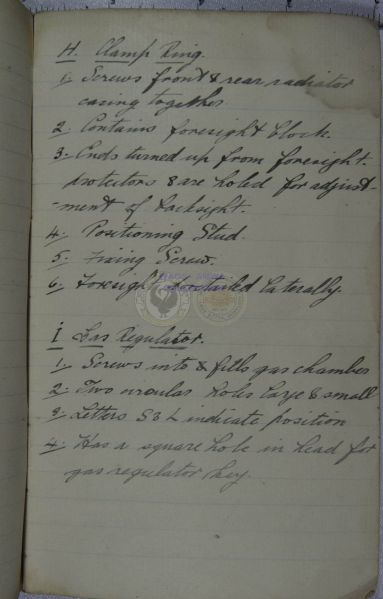 H. Clamp Ring.
1. Screws front & rear radiator
casing together
2. Contains foresight block.
3. Ends turned up from foresight
protectors & are holed for adjust-
-ment of backsight.
4. Positioning Stud.
5. Fixing Screw.
6. Foresight dovetailed laterally.
I Gas Regulator.
1. Screws into & fills gas chamber
2. Two circular holes large & small
3. Letters S & L indicate position
4. Has a square hole in head for
gas regulator key.